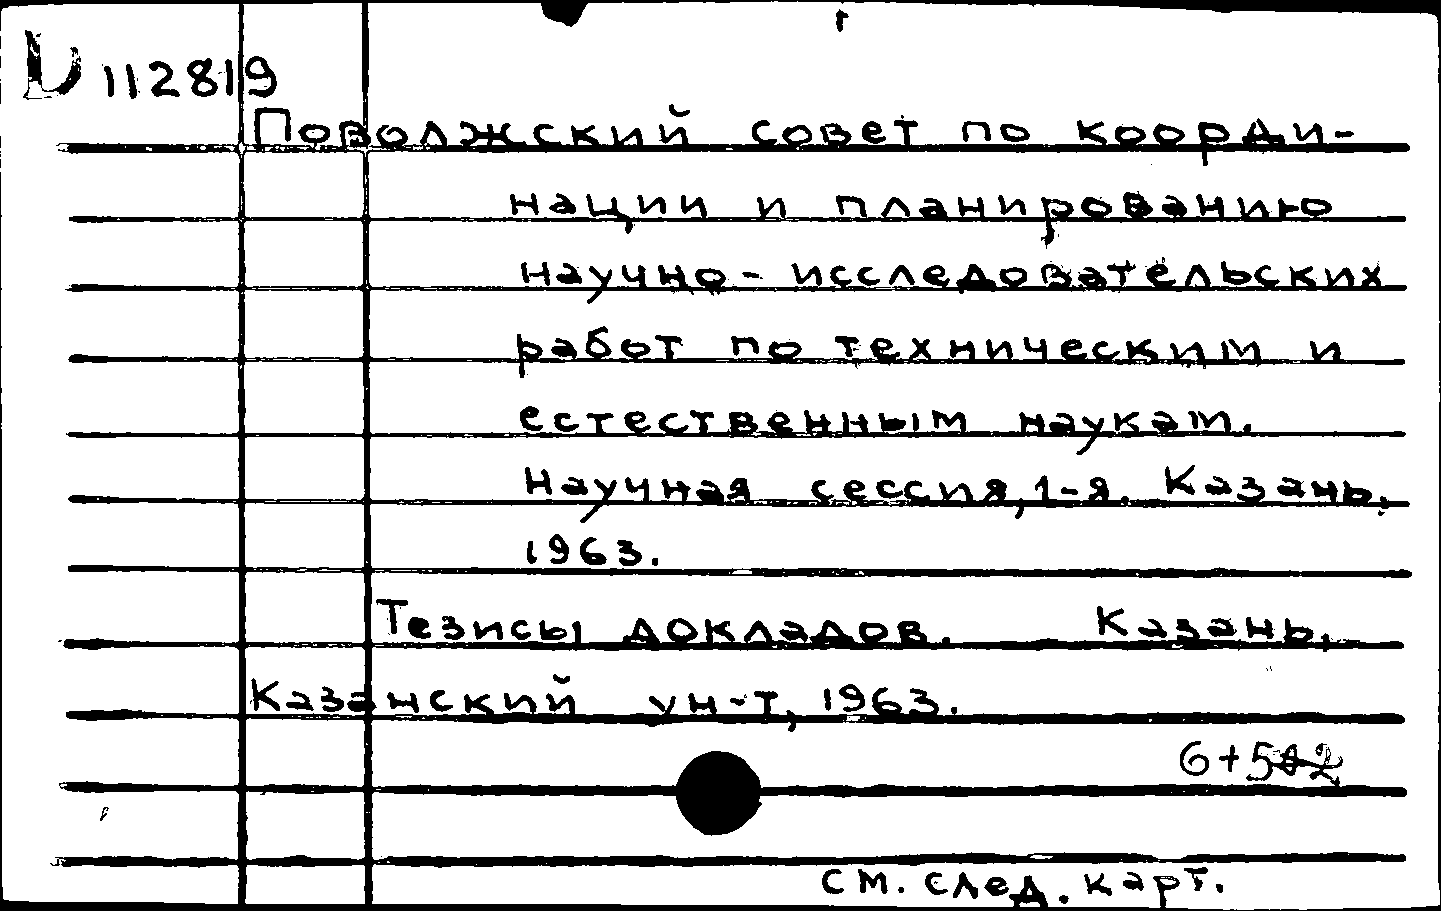 D 112819
Поволжский совет по коорди-
нации и планированию
научно-исследовательских
работ по техническим и
естественным наукам.
Научная сессия, 1-я. Казань,
1963.
Тезисы докладов. Казань,
Казанский ун-т, 1963.
6+5
см. след. карт.